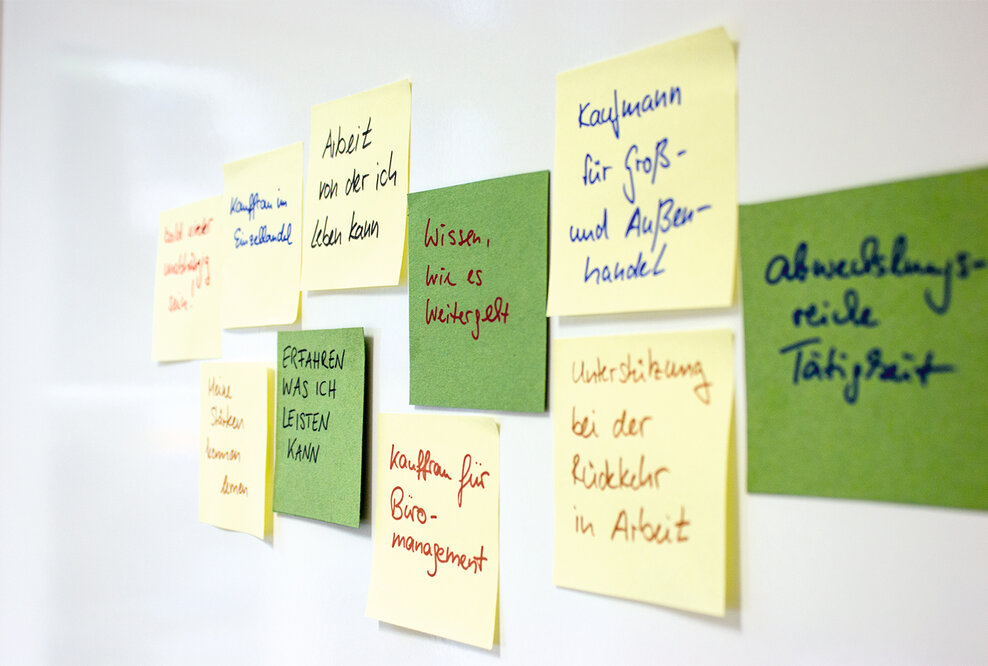 bald wieder
unabhängig
sein!
Kauffrau im
Einzelhandel
Arbeit
von der ich
leben kann
Wissen,
wie es
weitergeht
Kaufmann
für Groß-
und Außen-
handel
abwechslungs-
reiche
Tätigkeit
Meine
Stärken
kennen
lernen
ERFAHREN
WAS ICH
LEISTEN
KANN
Kauffrau für
Büro-
management
Unterstützung
bei der
Rückkehr
in Arbeit